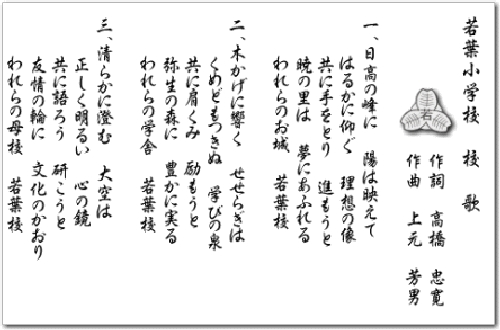 若葉小学校 校歌
若
作詞 高橋 忠寛
作曲 上元 芳男
一、日高の峰に 陽は映えて
はるかに仰ぐ 理想の像
共に手をとり 進もうと
暁の里は 夢にあふれる
われらのお城 若葉校
二、木かげに響く せせらぎは
くめどもつきぬ 学びの泉
共に肩くみ 励もうと
弥生の森に 豊かに実る
われらの学舎 若葉校
三、清らかに澄む 大空は
正しく明るい 心の鏡
共に語ろう 研こうと
友情の輪に 文化のかおり
われらの母校 若葉校